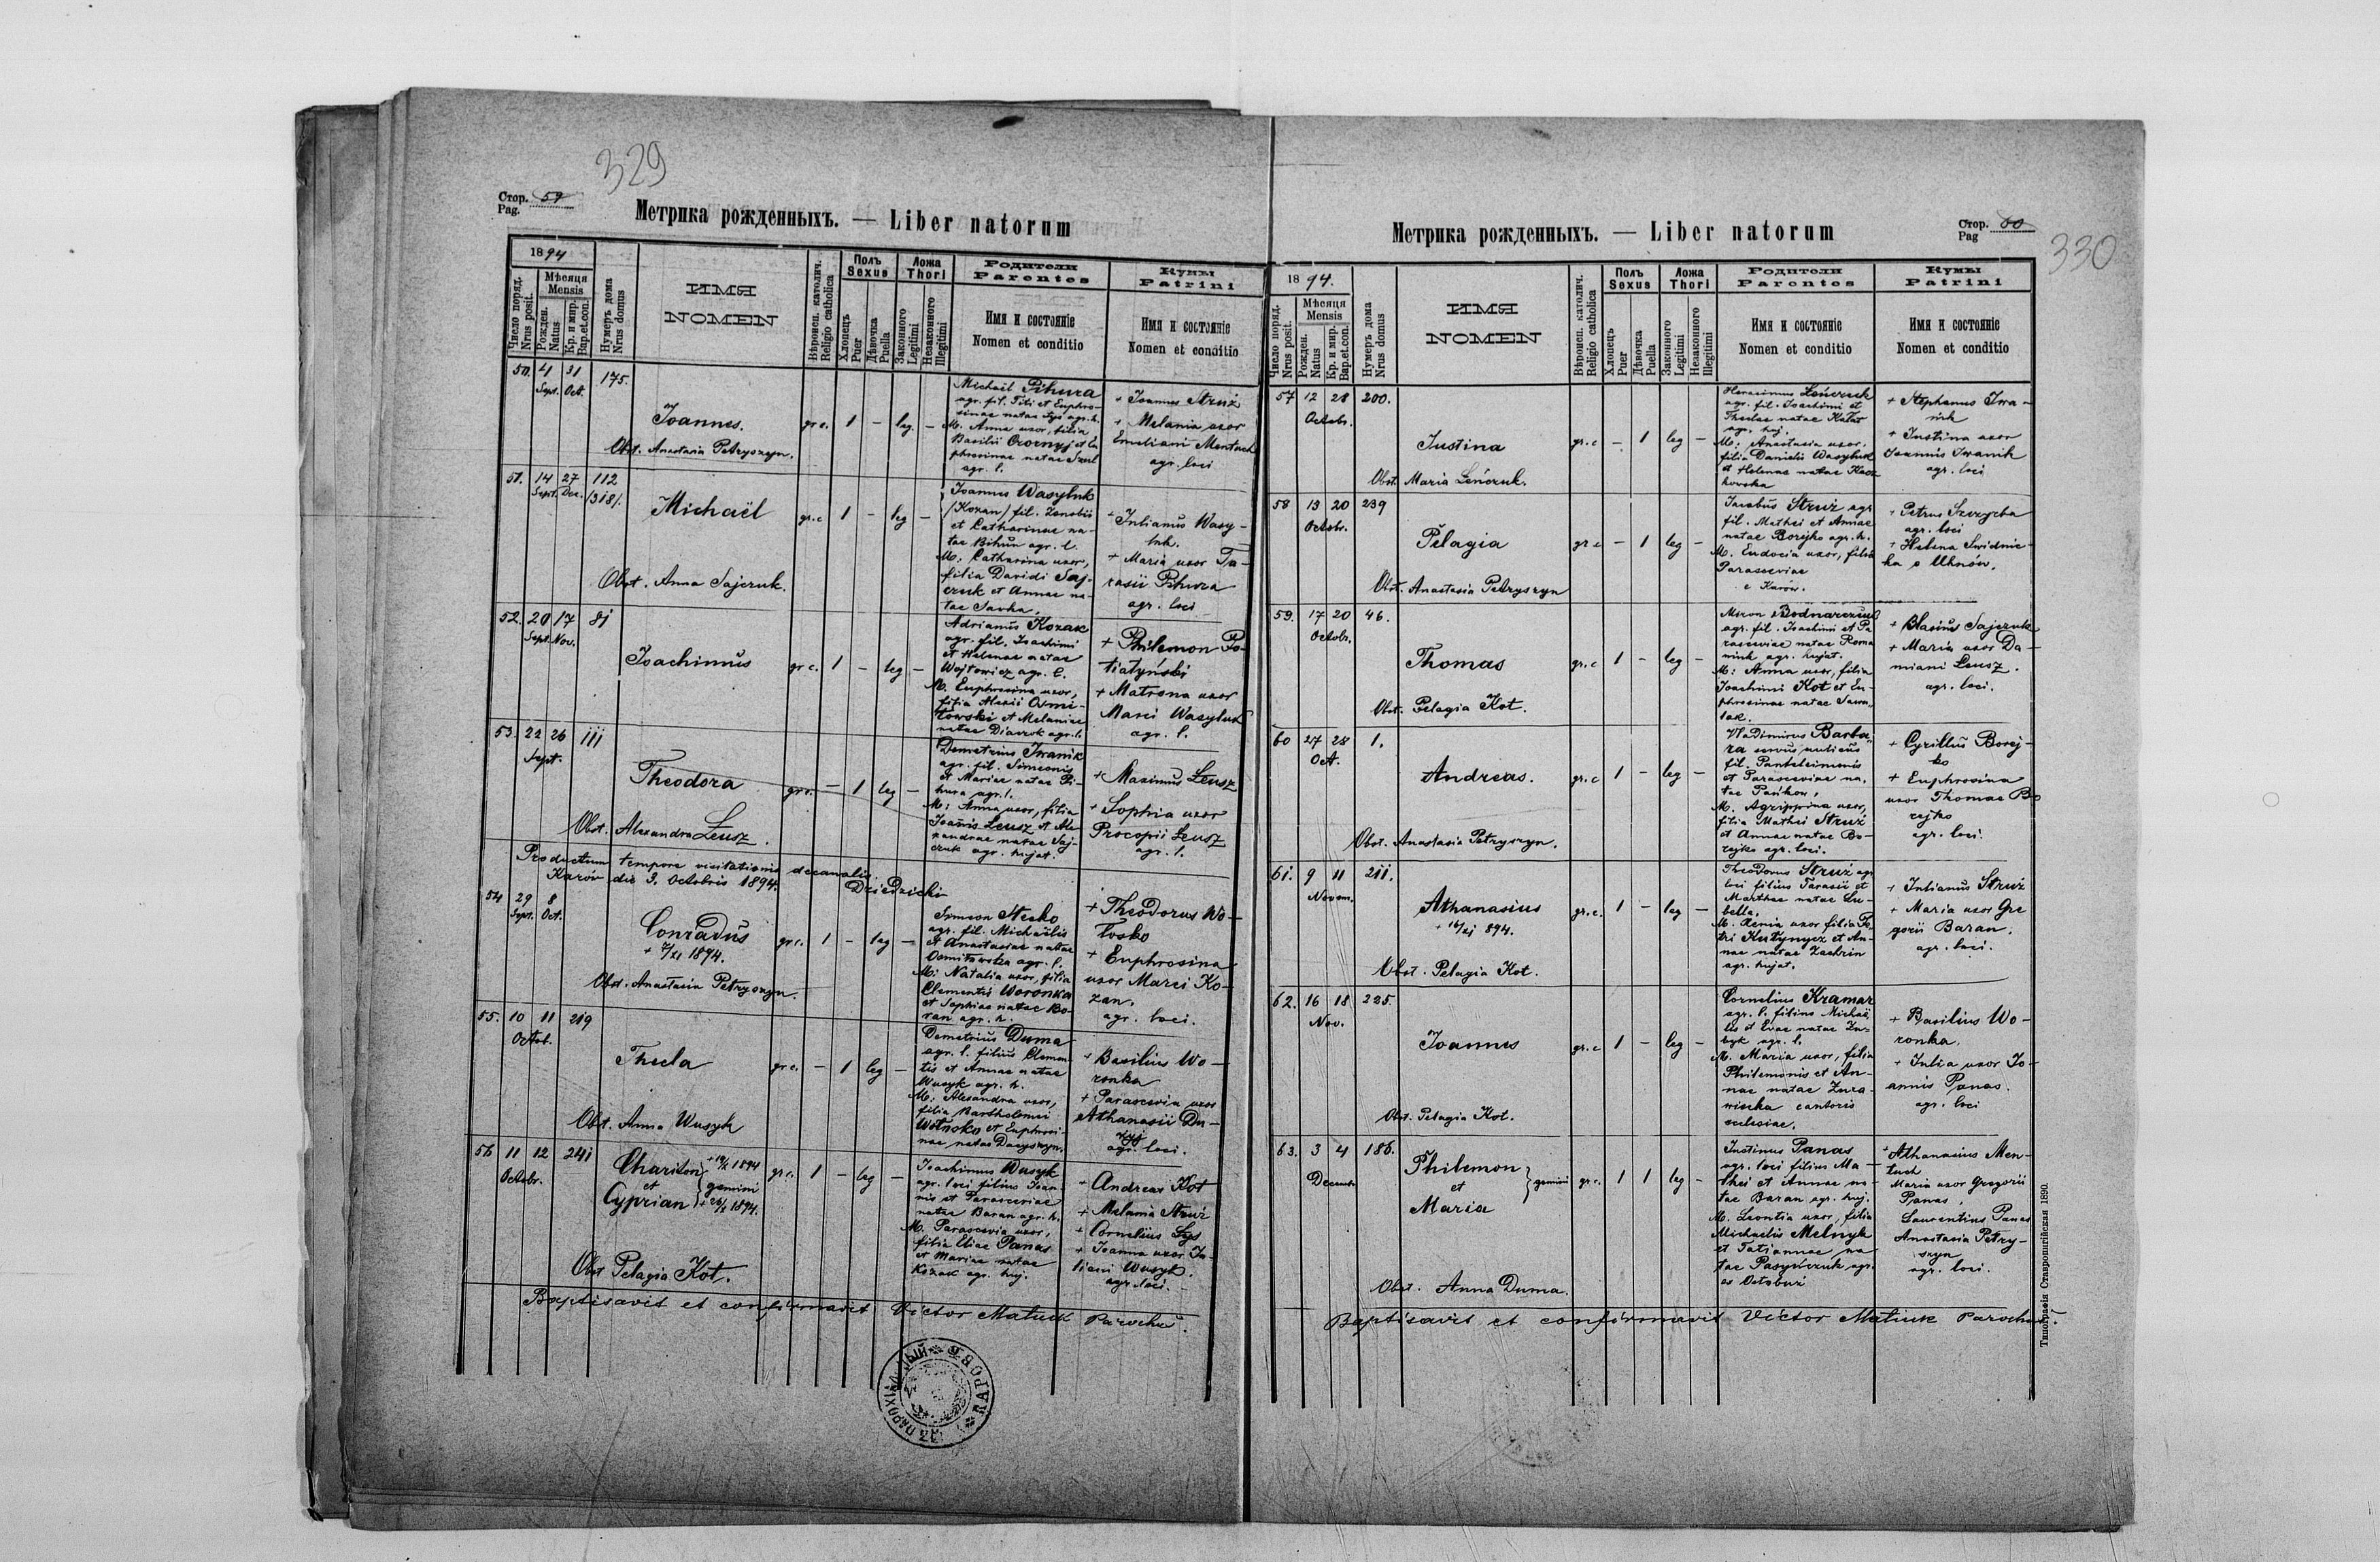 329
Стор. 59
Pag.
Метрика рожденныхъ. — Liber natorum
1894
Число поряд.
Nrus posit.
Мѣсяця
Mensis
Рожден.
Natus
Кр. и мир.
Bap.et.con.
Нумеръ дома
Nrus domus
ИМЯ
NOMEN
Вѣроисп. католич.
Religio catholica
Полъ
Sexus
Хлопецъ
Puer
Дѣвочка
Puella
Ложа
Thori
Законного
Legitimi
Незаконного
Illegitimi
Родители
Parentes
Имя и состоянiе
Nomen et conditio
Кумы
Patrini
Имя и состоянiе
Nomen et conditio
50. 4 31 175.
Sept. Oct.
Joannes.
gr. c. 1 – leg. –
Obst. Anastasia Petryszyn.
Michaël Pihura
agr. fil. Titi et Euphro-
sinae natae Sys agr. h.
M. Anna uxor, filia
Basilii Ozornyj et Eu
phrosinae natae Szul
agr. l.
+ Joannes Struż
+ Melania uxor
Emeliani Mentuch
agr. loci
51. 14 27 112
Sept. Dec. /318/.
Michaël
gr. c 1 – leg –
Obst. Anna Sajczuk.
Joannes Wasyluk
/Kozan/ fil. Zenobii
et Catharinae na-
tae Bihun agr. l.
M: Catharina uxor,
filia Davidi Saj-
czuk et Annae na-
tae Savka.
+ Julianus Wasy-
luk.
+ Maria uxor Ta-
rasii Pihura
agr. loci
52. 20 17 81
Sept. Nov.
Joachimus
gr c. 1 – leg –
Adrianus Kozak
agr. fil. Joachimi
et Helenae natae
Wojtowicz agr. l.
M. Euphrosina uxor,
filia Alexii Osmi-
łowski et Melaniae
natae Diaczok agr. l.
+ Philemon Po-
tiatyński
+ Matrona uxor
Marci Wasyluk
agr. l.
53. 22 26 111
Sept.
Theodora
gr c. – 1 leg –
Obst. Alexandra Leusz.
Demetrius Iwanik
agr. fil. Simeonis
et Mariae natae Pi-
hura agr. l.
M: Anna uxor, filia
Joannis Leusz et Ale
xandrae natae Saj-
czuk agr. hujat.
+ Maximus Leusz
+ Sophia uxor
Procopii Leusz
agr. l.
Productum tempore visitationis decanalis.
Karów die 3. Octobris 1894. Dziedzicki
54 29 8
Sept. Oct.
Conradus
+ 7/XI 1894.
gr c. 1 – leg –
Obst. Anastasia Petryszyn.
Simeon Stecko
agr. fil. Michaëlis
et Anastasiae natae
Osmiłowska agr. l.
M: Natalia uxor, filia
Clementis Woronka
et Sophiae natae Bo
ran agr. h.
+ Theodorus Wo-
łosko
+ Euphrosina
uxor Marci Ko-
zan.
agr. loci.
55. 10 11 219
Octob.
Thecla
gr c. – 1 leg –
Obst. Anna Wusyk
Demetrius Duma
agr. l. filius Clemen
tis et Annae natae
Wusyk agr. h.
M: Alexandra uxor,
filia Bartholomei
Wołosko et Euphrosi-
nae natae Daryszyn.
+ Basilius Wo-
ronka
+ Parascevia uxor
Athanasii Du-
agr. loci.
56 11 12 241
Octobr.
Chariton
et
Cyprian
gemini
gr c. 1 – leg –
Obst Pelagia Kot.
Joachimus Wusyk
agr. loci filius Joan-
nis et Parasceviae
natae Baran agr. h.
M. Parascevia uxor,
filia Eliae Panas
et Mariae natae
Kozak agr. huj.
+ Andreas Kot
+ Melania Struż
+ Cornelius Sys
+ Joanna uxor Ju-
liani Wusyk.
agr. loci.
Baptisavit et confirmavit Victor Matiuk Parochus.
330
Стор. 60
Pag
Метрика рожденныхъ. — Liber natorum
1894.
Число поряд.
Nrus posit.
Мѣсяця
Mensis
Рожден.
Natus
Кр. и мир.
Bap.et.con.
Нумеръ дома
Nrus domus
ИМЯ
NOMEN
Вѣроисп. католич.
Religio catholica
Полъ
Sexus
Хлопецъ
Puer
Дѣвочка
Puella
Ложа
Thori
Законного
Legitimi
Незаконного
Illegitimi
Родители
Parentes
Имя и состоянiе
Nomen et conditio
Кумы
Patrini
Имя и состоянiе
Nomen et conditio
57 12 28 200.
Octobr.
Justina
gr. c – 1 leg –
Obst. Maria Leńczuk.
Herasimus Leńczuk
agr. fil. Joachimi et
Theclae natae Kałat
agr. huj.
M: Anastasia uxor.
filia Danielis Wasyluk
et Helenae natae Kacz
kowska
+ Stephanus Iwa-
nik
+ Justina uxor
Joannis Iwanik
agr. loci
58 13 20 239
Octobr.
Pelagia
gr c – 1 leg –
Obst. Anastasia Petryszyn
Jacobus Struż agr
fil. Mathei et Annae
natae Borejko agr. h.
M. Eudocia uxor, filia
Parasceviae
e Karów.
+ Petrus Szczerba
agr. loci
+ Helena Swidnic-
ka e Uhnów.
59. 17 20 46.
Octobr.
Thomas
gr. c 1 – leg –
Obst. Pelagia Kot.
Miron Bodnarczuk
agr. fil. Joachimi et Pa
rasceviae natae Roma
niuk agr. hujat.
M: Anna uxor, filia
Joachimi Kot et Eu-
phrosinae natae Saw
łak.
+ Blasius Sajczuk
+ Maria uxor Da-
miani Leusz.
agr. loci.
60 27 28 1.
Oct.
Andreas.
gr. c 1 – leg –
Obst. Anastasia Petryszyn.
Vladimirus Barba-
ra servus aulicus
fil. Panteleimonis
et Parasceviae na-
tae Pańkow.
M. Agrippina uxor,
filia Mathei Struż
et Annae natae Bo-
rejko agr. loci.
+ Cyrillus Borej-
ko
+ Euphrosina
uxor Thomae Bo
rejko
agr. loci.
61. 9 11 211.
Novem.
Athanasius
+ 16/XI 894.
gr. c. 1 – leg –
Obst. Pelagia Kot.
Theodorus Struż agr
loci filius Tarasii et
Marthae natae Lu-
bella.
M. Xenia uxor filia Pe
tri Kutynycz et An-
nae natae Zachrin
agr. hujat.
+ Julianus Struż
+ Maria uxor Gre
gorii Baran.
agr. loci.
62. 16 18 225.
Nov.
Joannes
gr. c 1 – leg –
Obst. Pelagia Kot.
Cornelius Kramar
agr. l. filius Michaë
lis et Evae natae Zu-
byk agr. l.
M. Maria uxor, filia
Philemonis et An-
nae natae Zura-
wiecka cantoris
ecclesiae.
+ Basilius Wo-
ronka.
+ Julia uxor Jo-
annis Panas.
agr. loci
63. 3 4 186.
Decemb.
Philemon
et
Maria
gemini
gr c. 1 1 leg –
Obst. Anna Duma.
Justinus Panas
agr. loci filius Ma-
thei et Annae na-
tae Baran agr. huj.
M. Leontia uxor, filia
Michaelis Melnyk
et Tatiannae na-
tae Pasyńczuk agr.
+ Athanasius Men-
tuch
Maria uxor Gregorii
Panas.
Laurentius Panas
Anastasia Petry-
szyn
agr. loci.
Baptisavit et confirmavit Victor Matiuk Parochus.
Типографiя Ставропигiйская 1890.